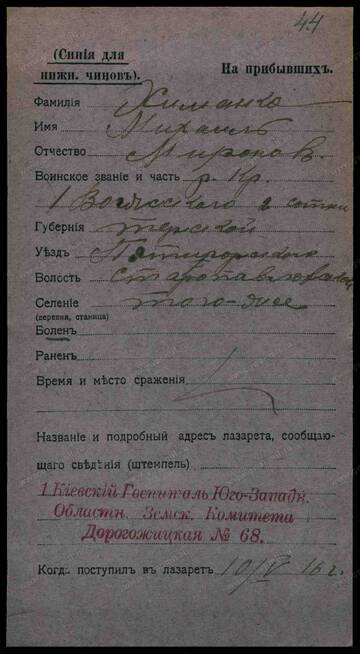 44
(Синія для
нижн. чиновъ).
На прибывшихъ.
Фамилія Химанко
Имя Михаилъ
Отчество Миронов.
Воинское званіе и часть р. Кр.
1 2 сотни
Губернія терской
Уѣздъ Пятигорского
Волость Старопавловской
Селеніе того-же
(деревня, станица)
Боленъ
Раненъ
Время и мѣсто сраженія
Названіе и подробный адресъ лазарета, сообщаю-
щаго свѣдѣнія (штемпель)
1 Кіевскій Госпиталь Юго-Западн.
Областн. Земск. Комитета
Дорогожицкая № 68.
Когда поступил въ лазаретъ 10/V 16 г.